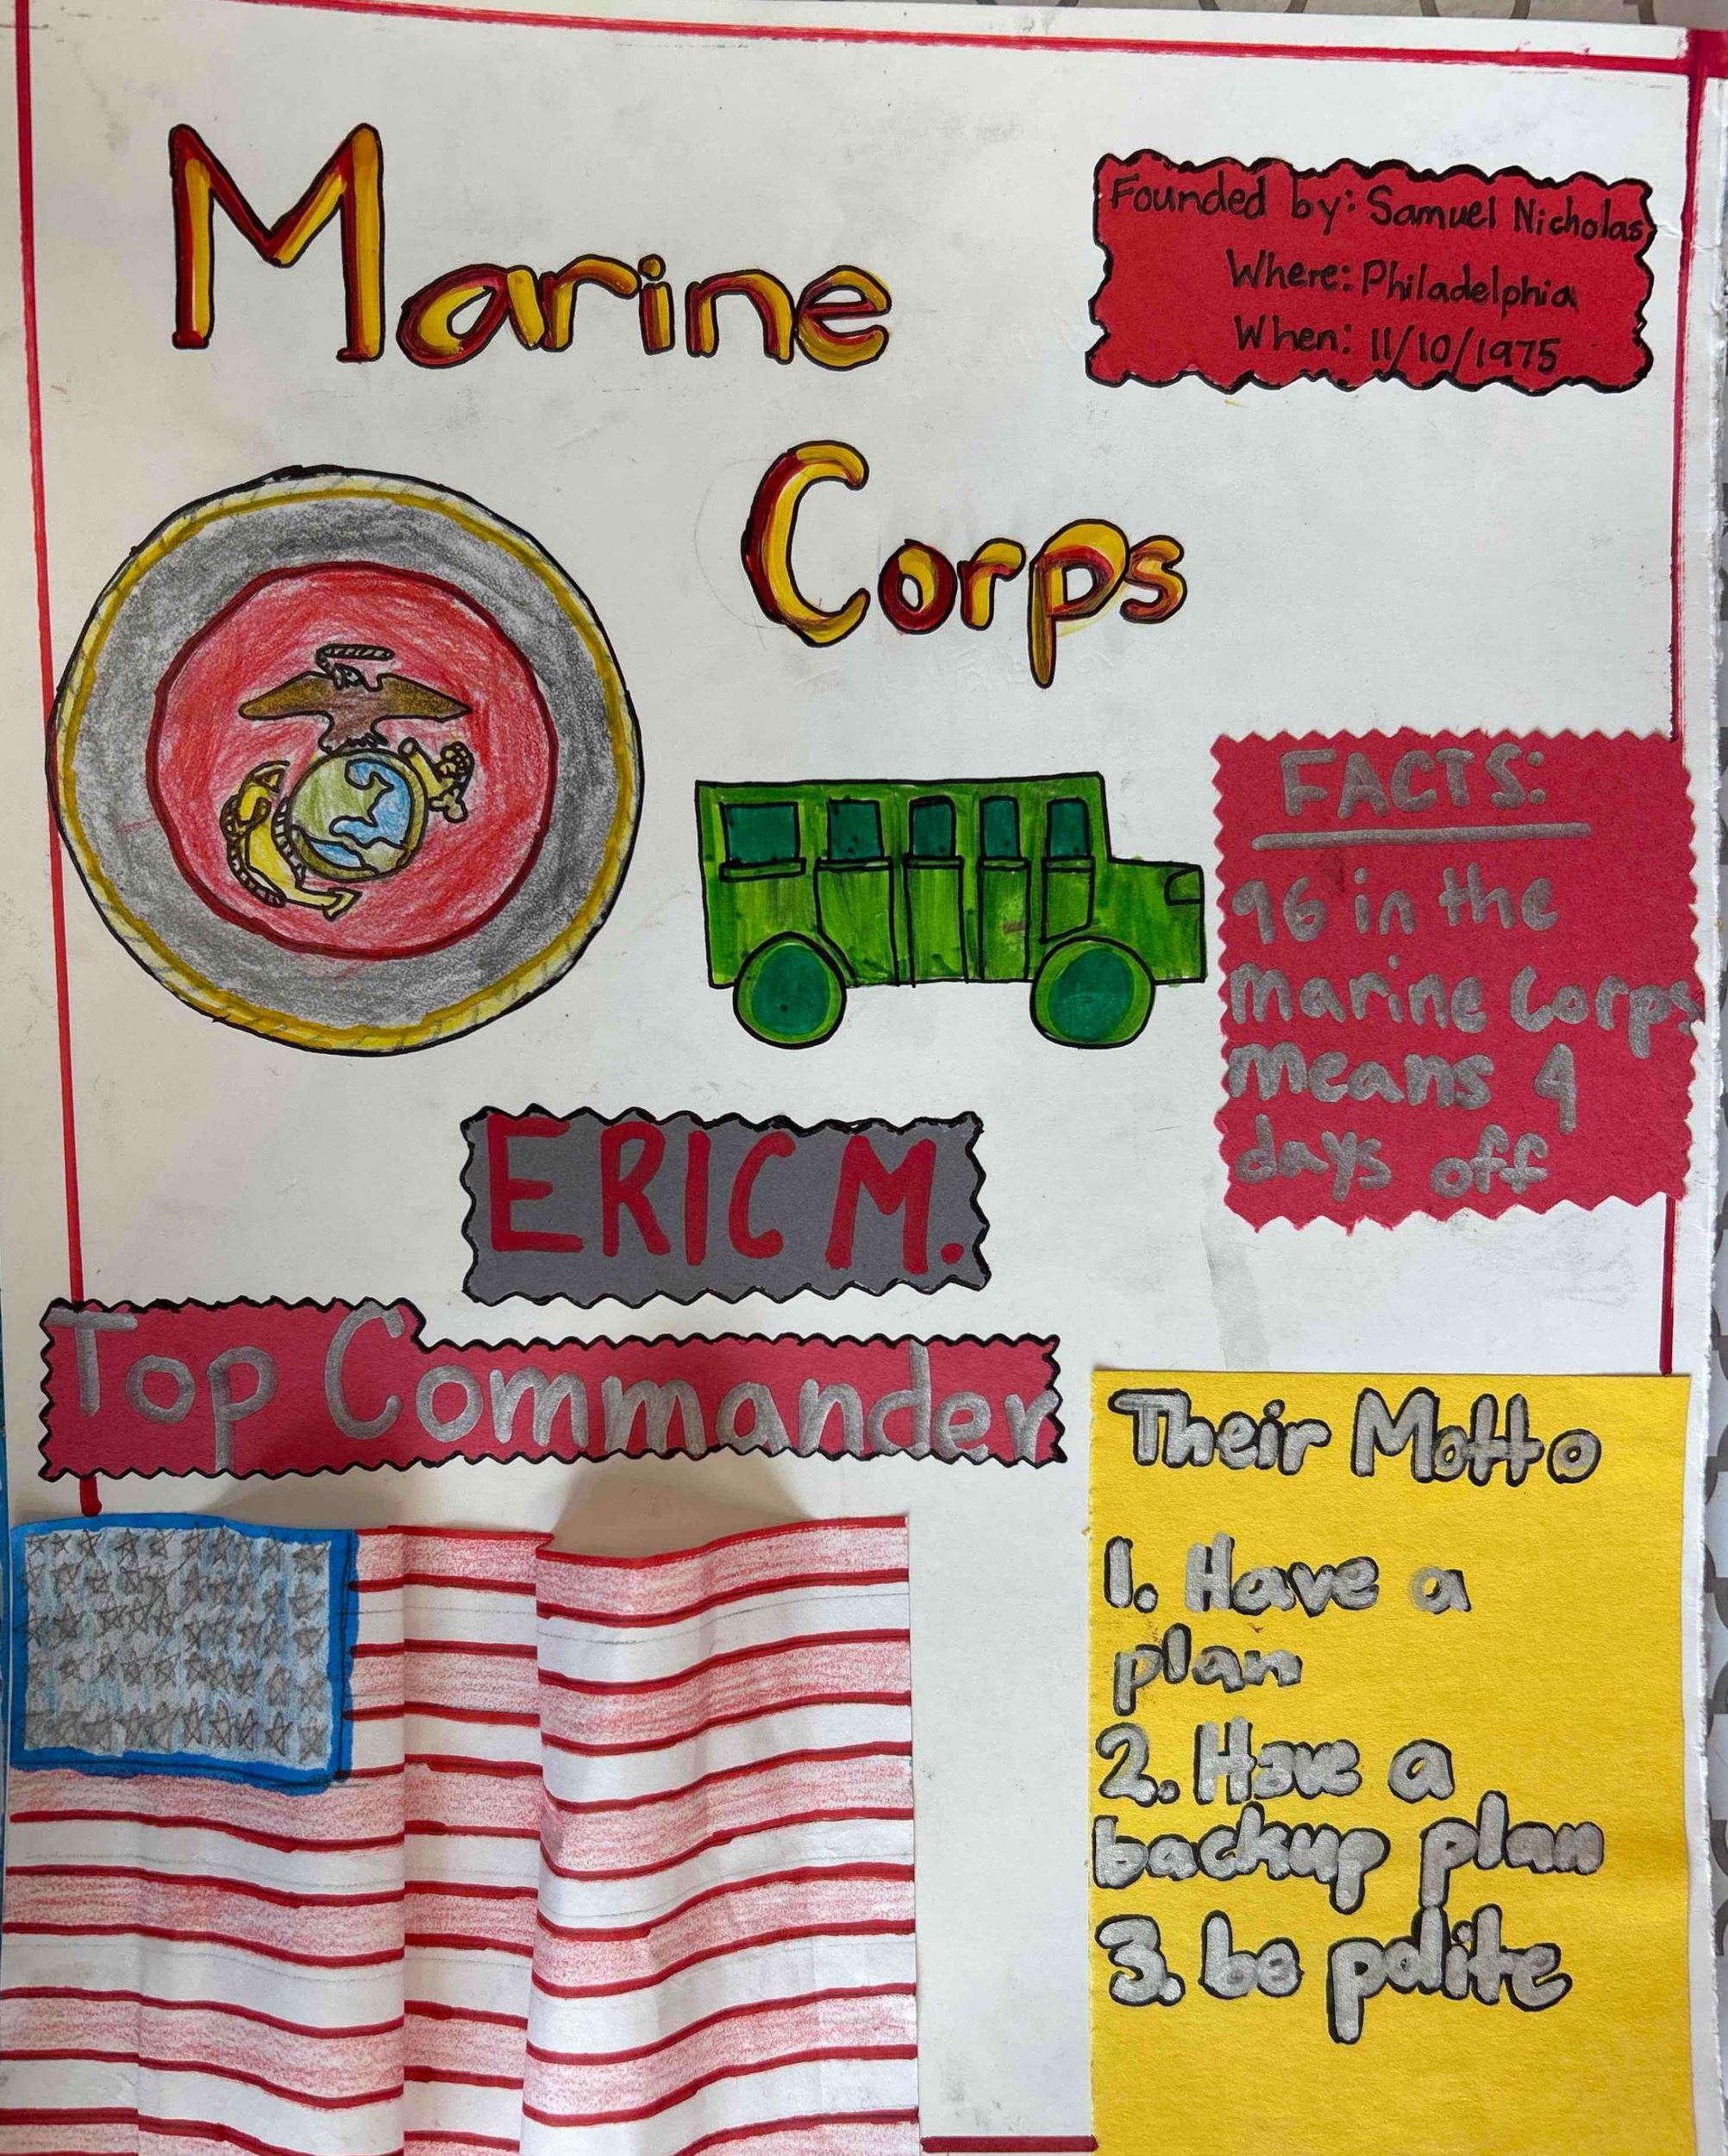 Marine
Corps
Founded by: Samuel Nicholas
Where: Philadelphia
When: 11/10/1975
FACTS:
96 in the
marine Corps
means 4
days off
ERIC M.
Top Commander
Their Motto
1. Have a
plan
2. Have a
backup plan
3. be polite